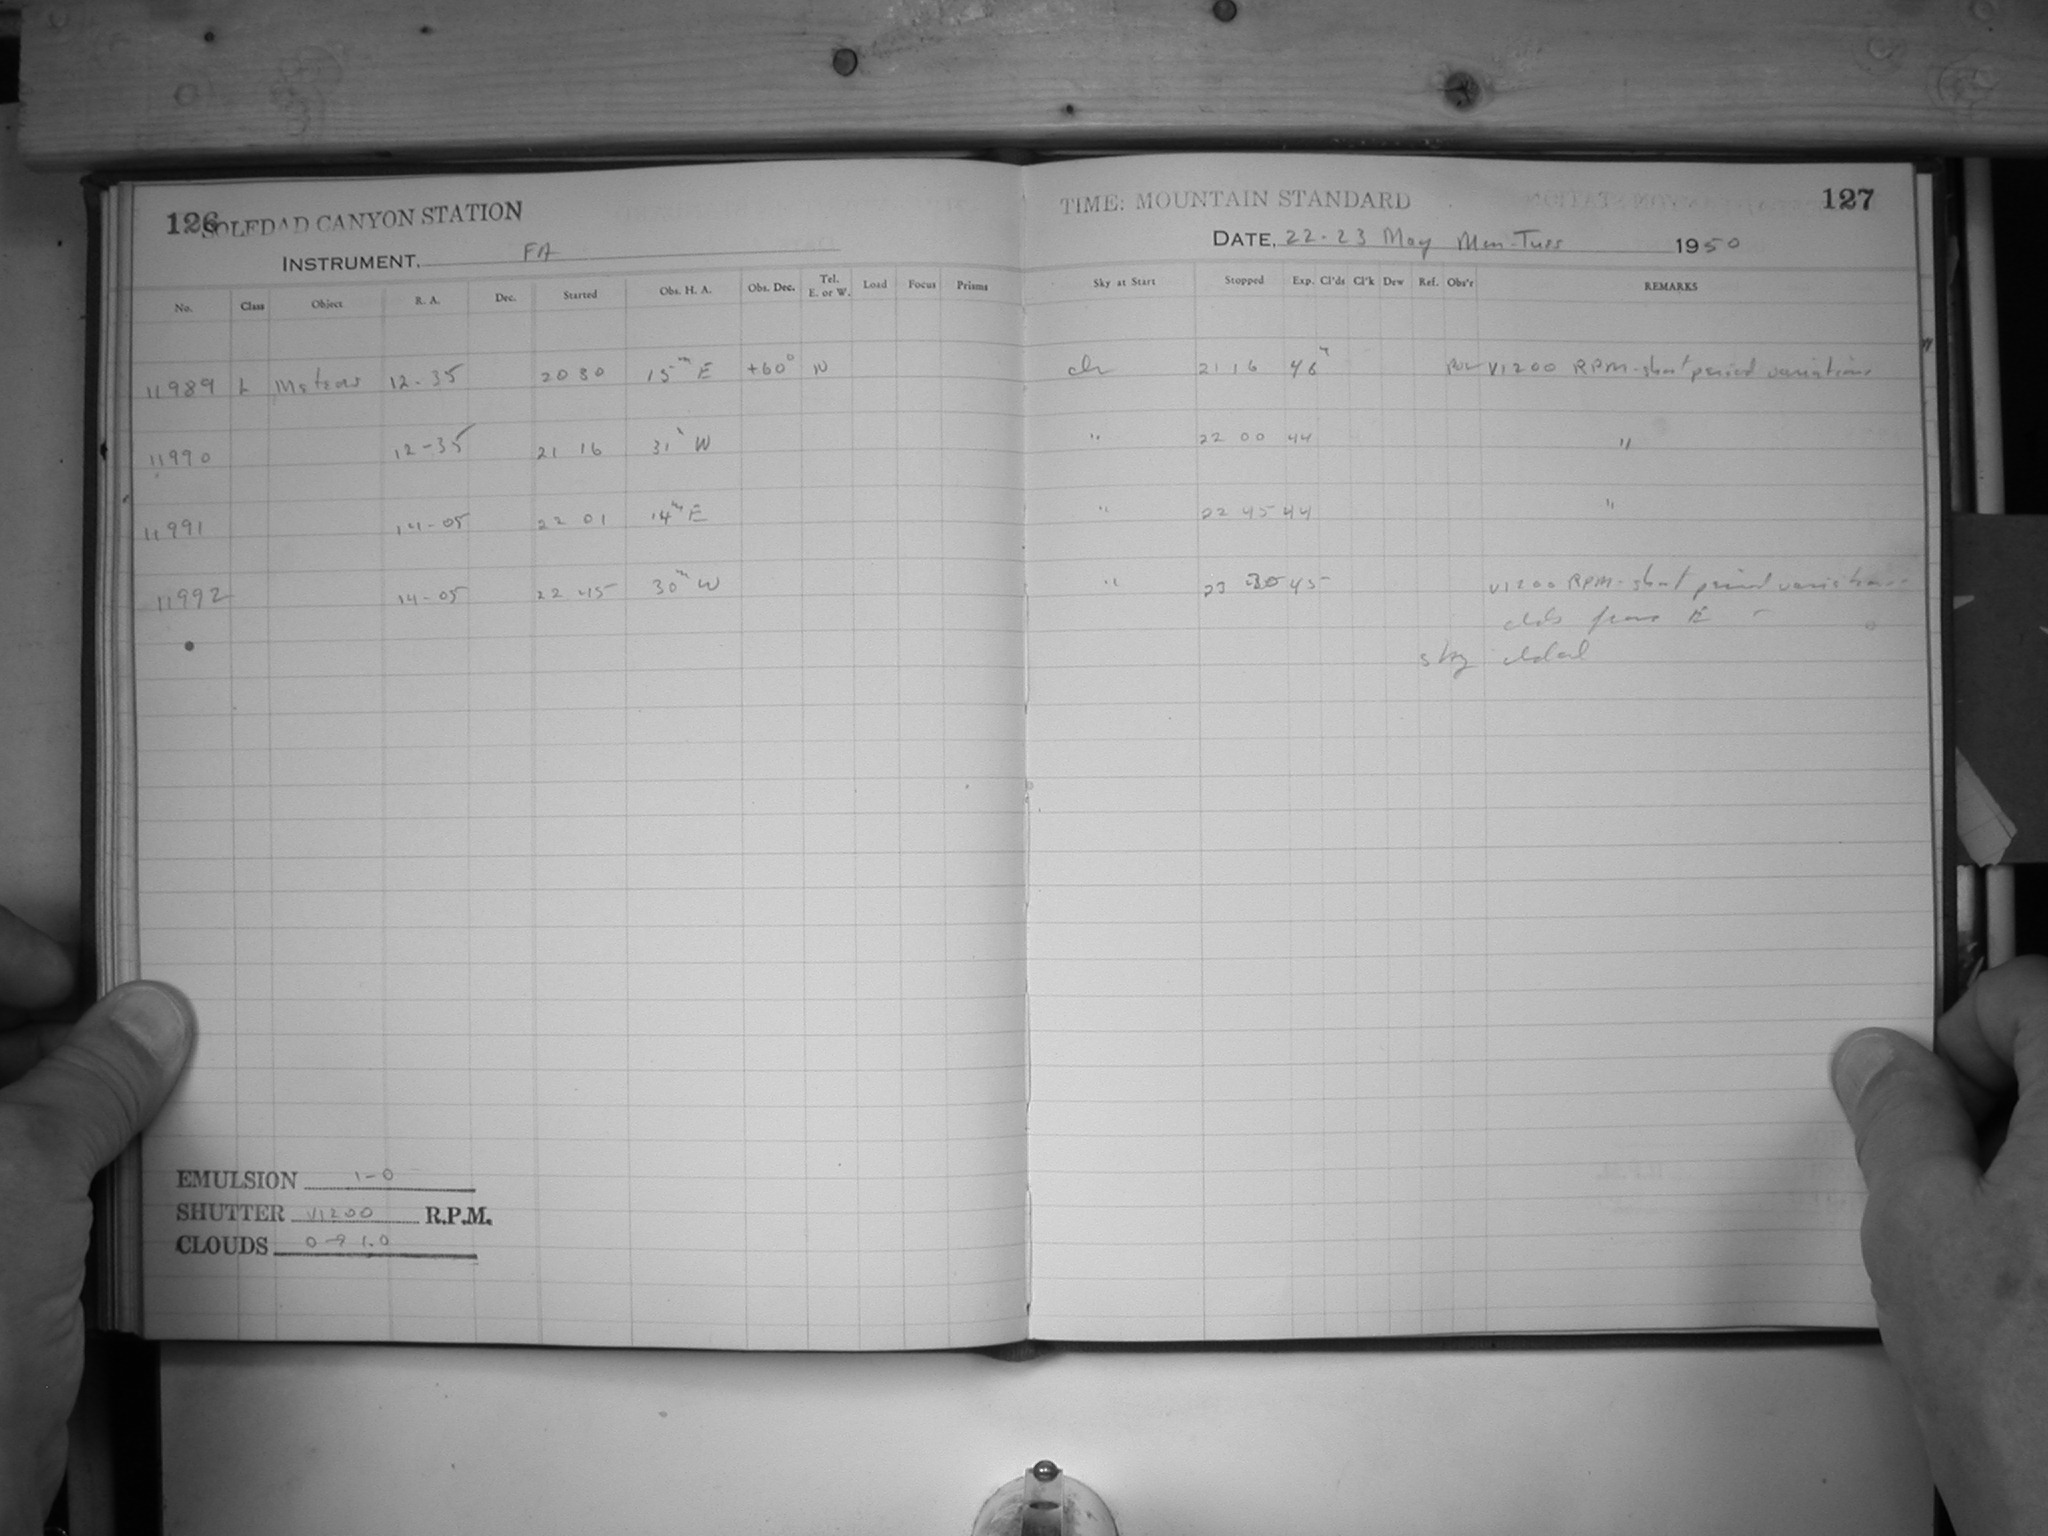 126 SOLEDAD CANYON STATION
INSTRUMENT. FA
No. Class Object R. A. Dec. Started Obs. H. A. Obs. Dec. Tel. E. or W. Load Focus Prisms
11989 L Meteors 12-35 20 30 15m E +60° N
11990 12-35 21 16 31 W
11991 14-05 22 01 14m E
11992 14-05 22 45 30m W
EMULSION 1-0
SHUTTER V1200 R.P.M.
CLOUDS 0→1.0
TIME: MOUNTAIN STANDARD 127
DATE, 22-23 May Mon-Tues 1950
Sky at Start Stopped Exp. Cl'ds Cl'k Dew Ref. Obs'r REMARKS
clr 21 16 46 V1200 RPM-short period variations
" 22 00 44 "
" 22 45 44 "
" 23 30 45 V1200 RPM-short period variations
clds from E
sky cldd